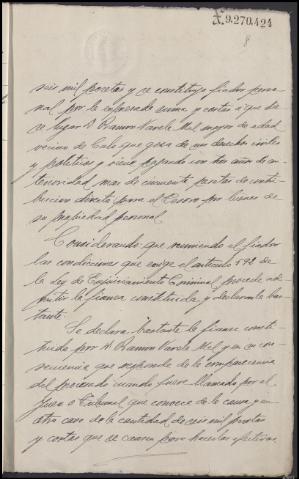 X 9.270.424
seis mil pesetas y se constituye fiador perso-
nal por la expresada suma y costas á que dé
se lugar D. Ramon Varela Mel mayor de edad
vecino de que goza de sus derechos civiles
y politicos y viene pagando con dos años de an-
terioridad mas de cincuenta pesetas de contri-
bucion directa para el Tesoro por bienes de
su propiedad personal.
Considerando que reuniendo el fiador
las condiciones que exige el articulo 592 de
la Ley de Enjuiciamiento Criminal procede ad-
mitir la fianza constituida y declararla bas-
tante.
Se declara bastante la fianza consti-
tuida por D. Ramon Varela Mel y en con-
secuencia que responde de la comparecencia
del procesado cuando fuere llamado por el
Juez o Tribunal que conozca de la causa y en
otro caso de la cantidad de seis mil pesetas
y costas que se causen para hacerlas efectivas